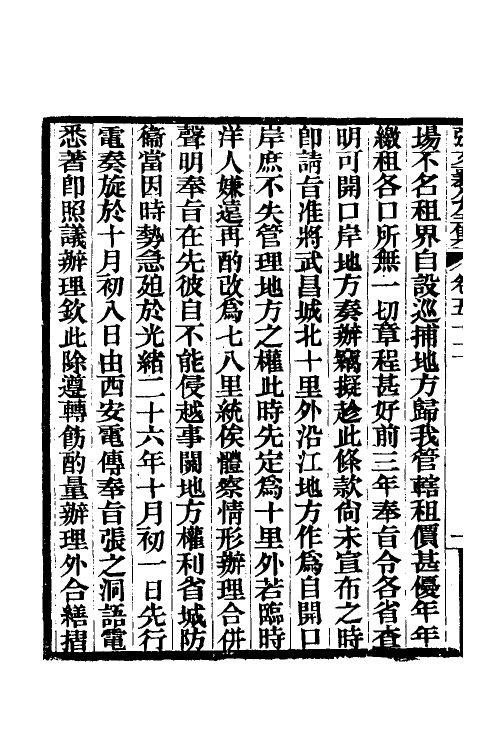 場不名租界自設巡捕地方歸我管轄租價甚優年年
繳租各口所無一切章程甚好前三年奉旨令各省查
明可開口岸地方奏辦竊擬趁此條款尙未宣布之時
卽請旨准將武昌城北十里外沿江地方作爲自開口
岸庶不失管理地方之權此時先定爲十里外若臨時
洋人嫌遠再酌改爲七八里統俟體察情形辦理合併
聲明奉旨在先彼自不能侵越事關地方權利省城防
衞當因時勢急廹於光緒二十六年十月初一日先行
電奏旋於十月初八日由西安電傳奉旨張之洞語電
悉著卽照議辦理欽此除遵轉飭酌量辦理外合繕摺